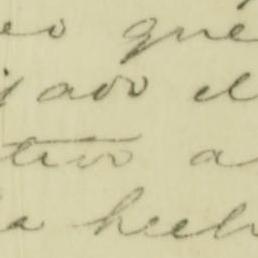 eo que
ado el
tivo a
a hech